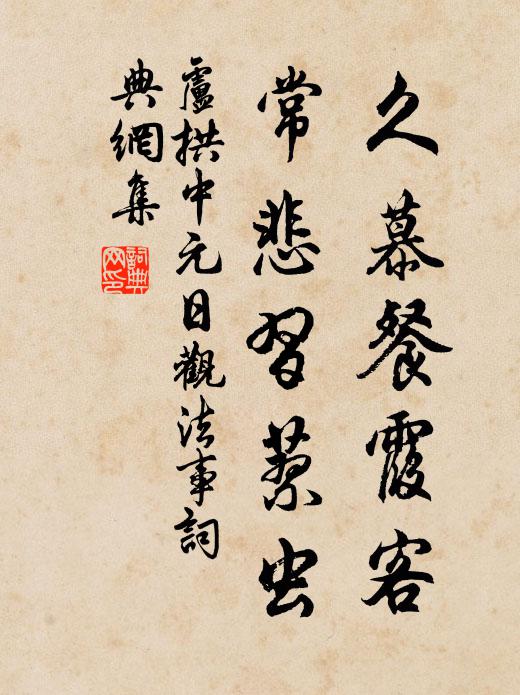 久慕餐霞客
常悲習蓼虫
盧拱中元日觀法事詞
典網集
詞典網印